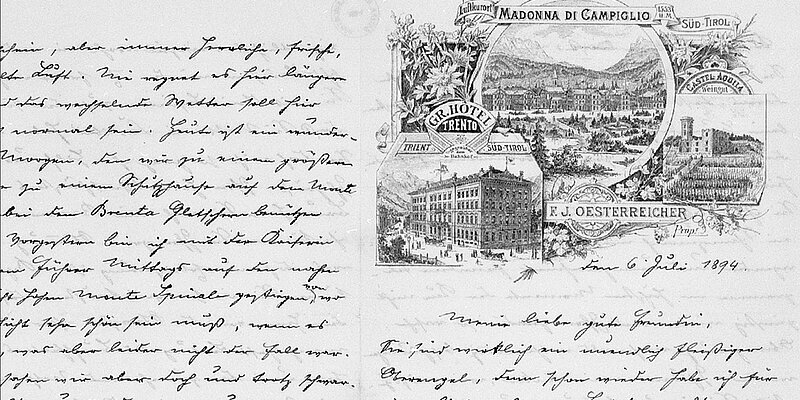 schein, aber immer herrliche, frische,
Luft. Nie regnet es hier längere
das wechselnde Wetter soll hier
normal sein. Heute ist ein wunder-
Morgen, den wir zu einem größeren
zu einem Schutzhause auf dem Monte
bei den Brenta Gletschern benützen
Vorgestern bin ich mit der Kaiserin
Führer Mittags auf den nahen
hohen Monte Spinale gestiegen, von wo
sehr schön sein muß, wenn es
, was aber leider nicht der Fall war.
sahen wir aber doch und trotz schwar-
Luftkurort MADONNA DI CAMPIGLIO 1553 ü.M.
SÜD-TIROL
CASTEL AQUILA
Weingut
GR. HÔTEL
TRENTO
TRIENT SÜD-TIROL
F. J. OESTERREICHER
Propr.
den 6 Juli 1894.
Meine liebe gute Freundin,
Sie sind wirklich ein unendlich fleißiger
Sterengel, denn schon wieder habe ich für